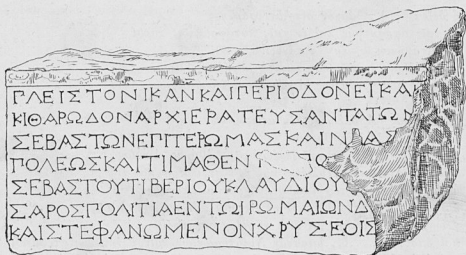 ΠΛΕΙΣΤΟΝΙΚΑΝΚΑΙΠΕΡΙΟΔΟΝΕΙΚΑ
ΚΙΘΑΡΩΔΟΝΑΡΧΙΕΡΑΤΕΥΣΑΝΤΑΤΩΝ
ΣΕΒΑΣΤΩΝΕΠΙΤΕΡΩΜΑΣΚΑΙΝ ΑΣ
ΠΟΛΕΩΣΚΑΙΤΙΜΑΘΕΝ
ΣΕΒΑΣΤΟΥΤΙΒΕΡΙΟΥΚΛΑΥΔΙΟΥ
ΣΑΡΟΣΠΟΛΙΤΙΑΕΝΤΩΙΡΩΜΑΙΩΝΔ
ΚΑΙΣΤΕΦΑΝΩΜΕΝΟΝΧΡΥΣΕΟΙΣ